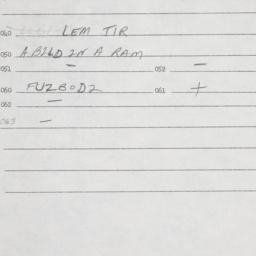 040 LEM TIR
050 ABILD IN A RAM
051 – 052 –
060 FUZBODZ 061 +
062 –
063 –